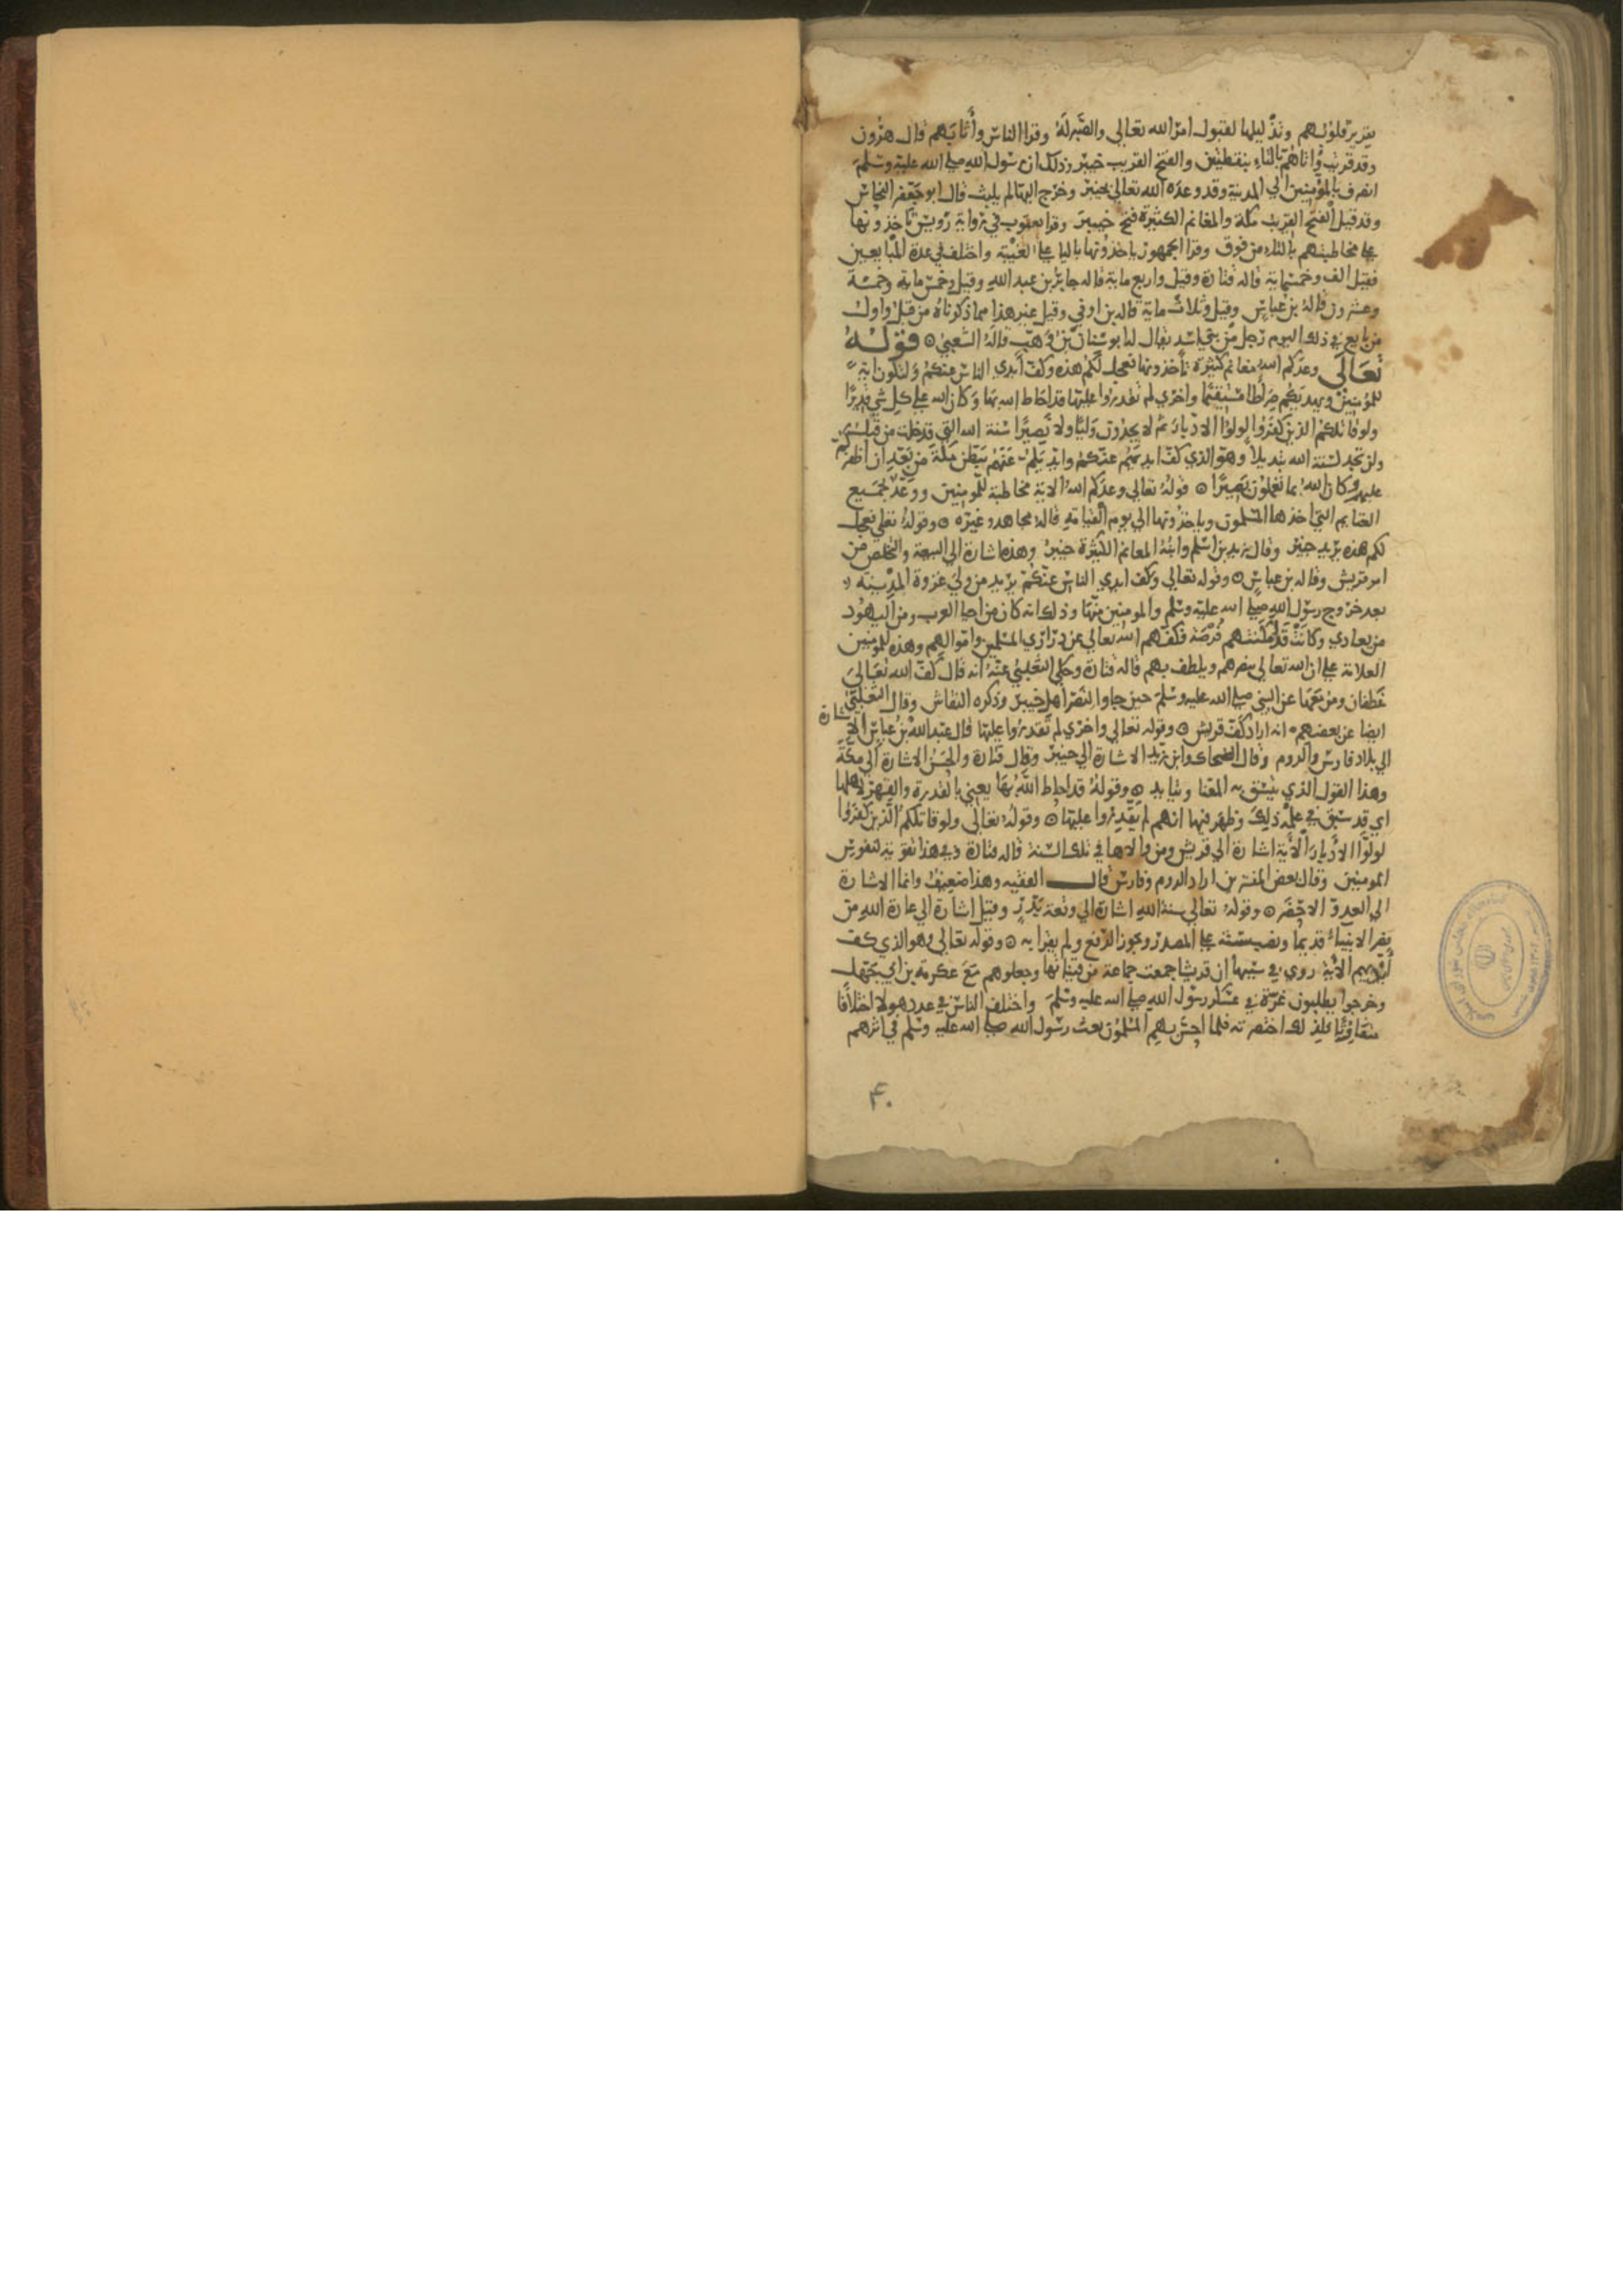 بقدير قلوبهم وتذليلها لقبول امر الله تعالى والصبر له وقرا الناس وأثابهم قال هرون
وقد قريت وأتاهم بالتاء بنقطتين والفتح القريب خيبر وذلك ان رسول الله صلى الله عليه وسلم
انصرف بالمؤمنين الى المدينة وقد وعده الله تعالى بخيبر وخرج اليها لم يلبث قال ابو جعفر النحاس
وقد قيل الفتح القريب مكة والمغانم الكثيرة فتح خيبر وقرا يعقوب في رواية رويس تاخذونها
على مخاطبتهم بالتاء من فوق وقرا الجمهور ياخذونها بالياء على الغيبة واختلف في عدة المبايعين
فقيل الف وخمسماية قاله قتادة وقيل واربع ماية قاله جابر بن عبد الله وقيل وخمس ماية وخمسة
وعشرون قاله بن عباس وقيل وثلاث ماية قاله بن اوفى وقيل غير هذا مما ذكرناه من قبل واول
من بايع في ذلك اليوم رجل من بني اسد يقال له ابو سنان بن وهب قاله الشعبي ۞ قوله
تعالى وعدكم الله مغانم كثيرة تأخذونها فعجل لكم هذه وكف أيدي الناس عنكم ولتكون اية
للمؤمنين ويهديكم صراطا مستقيما واخرى لم تقدروا عليها قد احاط الله بها وكان الله على كل شي قديرا
ولو قاتلكم الذين كفروا لولوا الادبار ثم لا يجدون وليا ولا نصيرا سنة الله التي قد خلت من قبل
ولن تجد لسنة الله تبديلا وهو الذي كف ايديهم عنكم وايديكم عنهم ببطن مكة من بعد ان اظفركم
عليهم وكان الله بما تعملون بصيرا ۞ قوله تعالى وعدكم الله الاية مخاطبة للمومنين ووعد بجميع
الغنايم التي اخذها المسلمون وياخذونها الى يوم القيامة قاله مجاهد وغيره ۞ وقوله تعلى فعجل
لكم هذه يريد خيبر وقال زيد بن اسلم وابنه المغانم الكثيرة خيبر وهذه اشارة الى البيعة والتخلص من
امر قريش وقاله بن عباس ۞ وقوله تعالى وكف ايدي الناس عنكم يريد من ولي عزوة المدينة
بعد خروج رسول الله صلى الله عليه وسلم والمومنين منها وذلك انه كان من احيا العرب ومن اليهود
من يعادي وكانت قد امكنتهم فرصة فكفهم الله تعالى عن ذراري المسلمين واموالهم وهذه للمومنين
العلامة على ان الله تعالى ينصرهم ويلطف بهم قاله قتادة وحكى الثعلبي عنه انه قال كف الله تعالى
غطفان ومن معها عن النبي صلى الله عليه وسلم حين جاوا لنصر اهل خيبر وذكره النقاش وقال الثعلبي
ايضا عن بعضهم انه اراد كف قريش ۞ وقوله تعالى واخرى لم تقدروا عليها قال عبد الله بن عباس الاشارة
الى بلاد فارس والروم وقال الضحاك وابن زيد الاشارة الى خيبر وقال قتادة والحسن الاشارة الى مكة
وهذا القول الذي يتسق به المعنا ويتايد ۞ وقوله قد احاط الله بها يعني بالقدرة والقهر لاهلها
اي قد سبق في علمه ذلك وظهر فيها انهم لم يقدروا عليها ۞ وقوله تعالى ولو قاتلكم الذين كفروا
لولوا الأدبار الأية اشارة الى قريش ومن والاها في تلك السنة قاله قتادة وفي هذا تقوية لنفوس
المومنين وقال بعض المفسرين اراد الروم وفارس قال الفقيه وهذا ضعيف وانما الاشارة
الى العدو الاحضر ۞ وقوله تعالى سنة الله اشارة الى وقعة بدر وقيل اشارة الى عادة الله من
نصر الانبياء قديما ونصب سنة على المصدر ويجوز الرفع ولم يقرا به ۞ وقوله تعالى وهو الذي كف
أيديهم الأية روي في سببها ان قريشا جمعت جماعة من فتيانها وجعلوهم مع عكرمة بن ابي جهل
وخرجوا يطلبون غرة في عسكر رسول الله صلى الله عليه وسلم واختلف الناس في عدد هولا اختلافا
متفاوتا فلذلك اختصرته فلما احس بهم المسلمون بعث رسول الله صلى الله عليه وسلم في اثرهم
۴۰